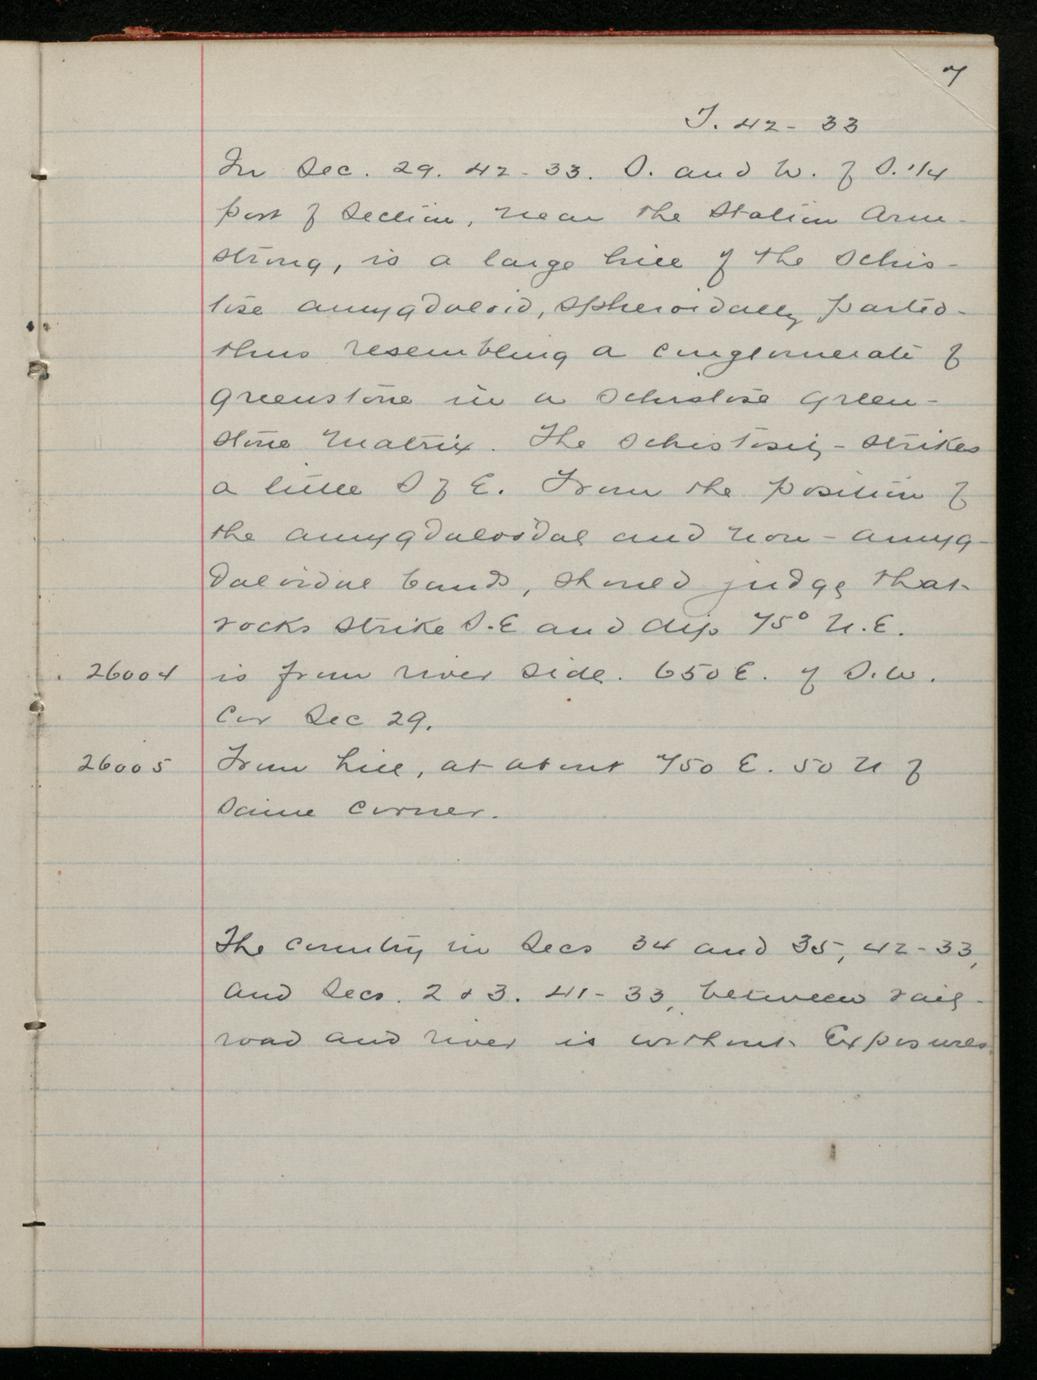 7
T. 42 - 33
In Sec. 29. 42 - 33. S. and W. of S. 1/4
post of Section, near the Station Arm-
strong, is a large hill of the schis-
tose amygdaloid, spheroidally parted -
thus resembling a conglomerate of
greenstone in a schistose green-
stone matrix. The schistosity - strikes
a little S of E. From the position of
the amygdaloidal and non - amyg-
daloidal bands, should judge that
rocks strike S.E and dip 75° N.E.
26004 is from river side. 650 E. of S.W.
Cor Sec 29.
26005 From hill, at about 750 E. 50 N of
same corner.
The country in Secs 34 and 35, 42-33,
and Secs. 2 & 3. 41 - 33, between rail-
road and river is without Exposures